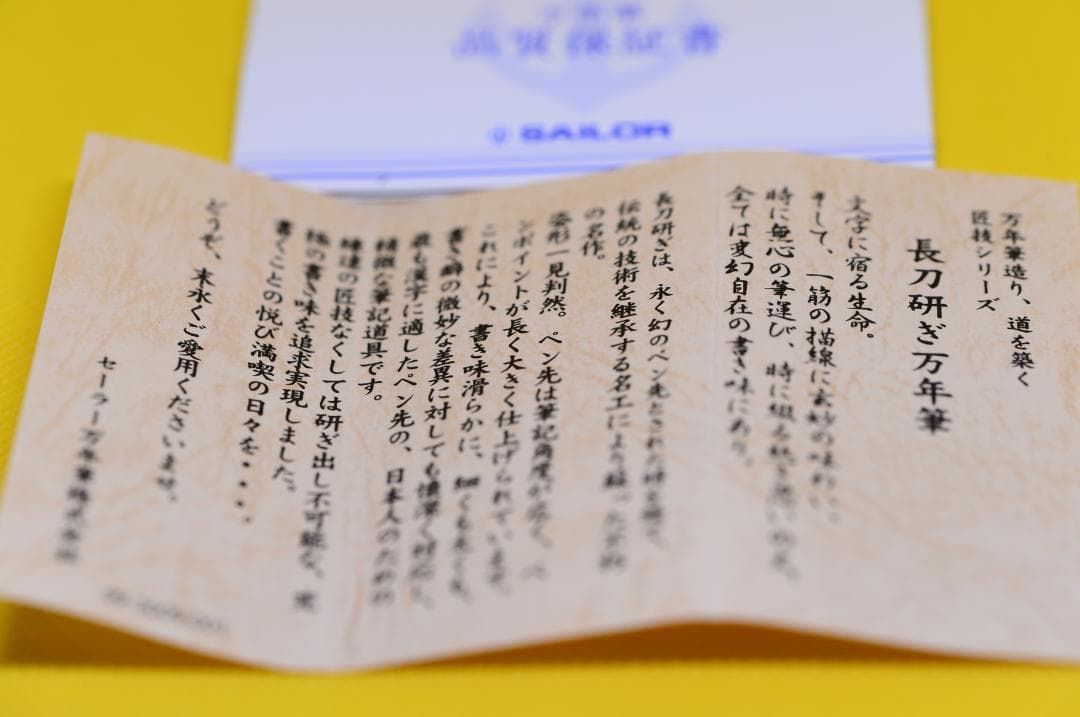 品質保証書
SAILOR
万年筆造り、道を築く
匠技シリーズ
長刀研ぎ万年筆
文字に宿る生命。
そして、一筋の描線に玄妙の味わい、
時に無心の筆運び、時に
全ては変幻自在の書き味にあり。
長刀研ぎは、永く幻のペン先とされた
伝統の技術を継承する名工により
の名作。
姿形一見判然。ペン先は筆記角度が広く、ペ
ンポイントが長く大きく仕上げられています。
これにより、書き味滑らかに、細くも太くも、
書き癖の微妙な差異に対しても懐深く対応し、
最も漢字に適したペン先の、日本人のための
精緻な筆記道具です。
の匠技なくしては研ぎ出し不可能な、究
極の書き味を追求実現しました。
書くことの悦び満喫の日々を・・・・
どうぞ、末永くご愛用くださいませ。
セーラー万年筆株式会社